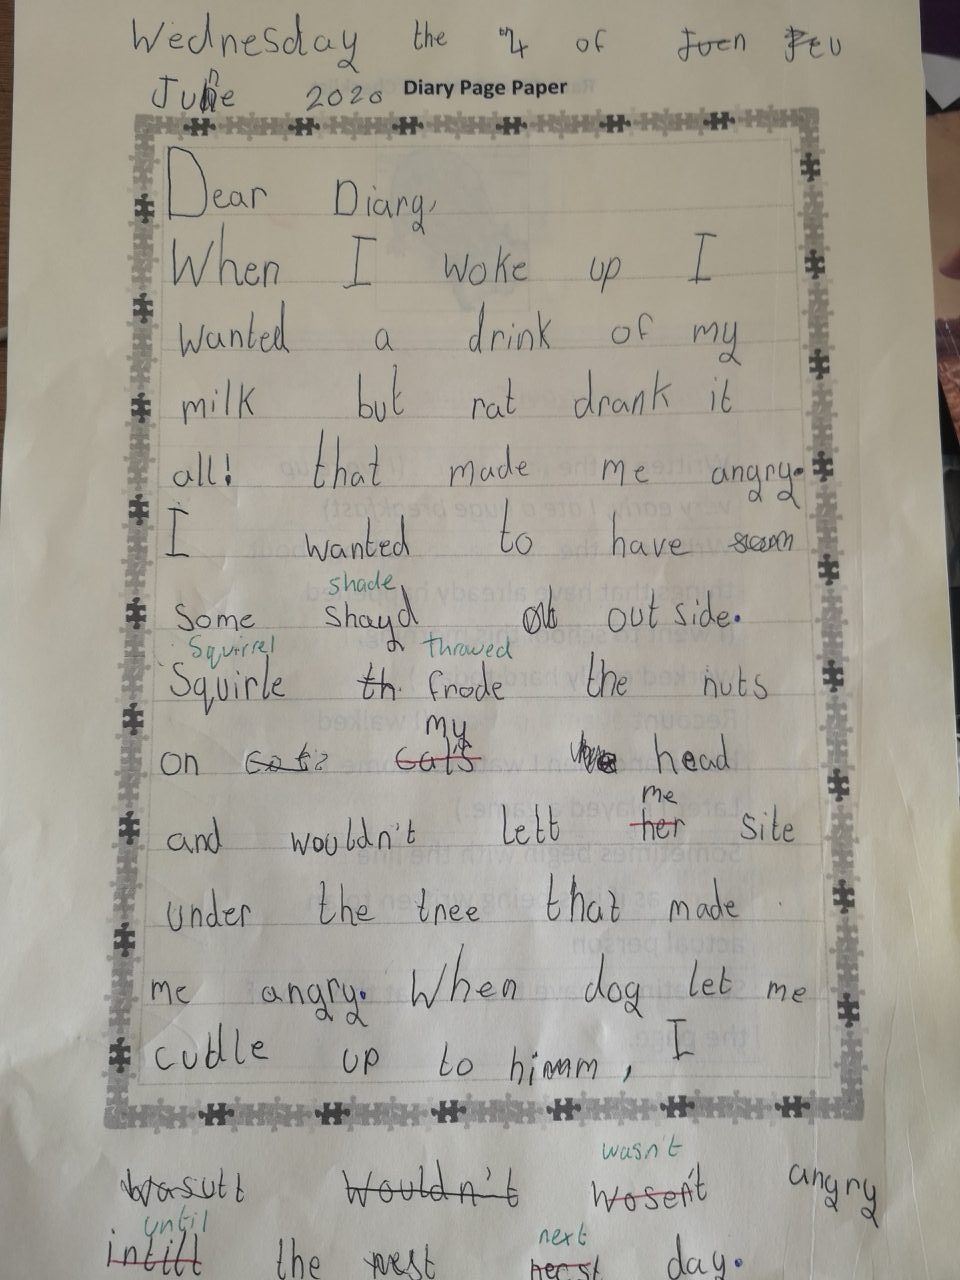 Wednesday the 4th of Joen Feu
June 2020 Diary Page Paper
Dear Diary,
When I woke up I
wanted a drink of my
milk but rat drank it
all! that made me angry.
I wanted to have
shade
some shayd out side.
Squirrel throwed
Squirle th frode the nuts
my
on cats cats head
me
and wouldn't lett her site
under the tree that made
me angry. When dog let me
cudle up to himm, I
wasn't
wasutt wouldn't wosen't angry
until next
intill the nest necst day.